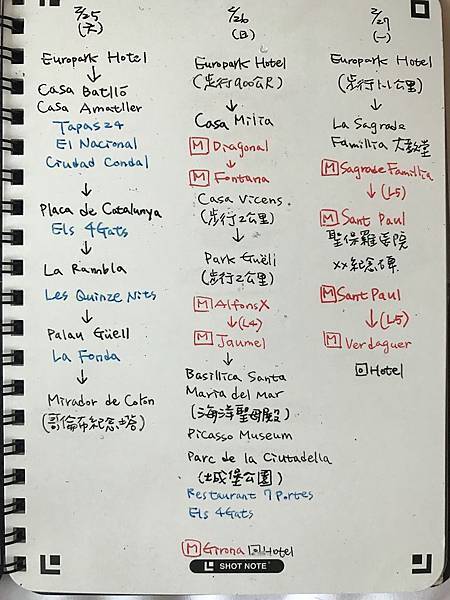 2/25
(六)
Europark Hotel
↓
Casa Batlló
Casa Amatller
Tapas 24
El Nacional
Ciudad Condal
↓
Placa de Catalunya
Els 4Gats
↓
La Rambla
Les Quinze Nits
↓
Palau Güell
La Fonda
↓
Mirador de Colón
(哥倫布紀念塔)
2/26
(日)
Europark Hotel
(步行900公尺)
↓
Casa Milia
M Diagonal
↓
M Fontana
Casa Vicens
(步行2公里)
↓
Park Guëli
(步行2公里)
M Alfons X
↓(L4)
M Jaumel
↓
Basillica Santa
Maria del Mar
(海洋聖母殿)
Picasso Museum
Parc de la Ciutadella
(城堡公園)
Restaurant 7 Portes
Els 4Gats
M Girona 回Hotel
2/27
(一)
Europark Hotel
(步行1.1公里)
↓
La Sagrada
Famillia 大教堂
M Sagrade Famillia
↓(L5)
M Sant Paul
聖保羅醫院
xx紀念碑
M Sant Paul
↓(L5)
M Verdaguer
回Hotel
SHOT NOTE